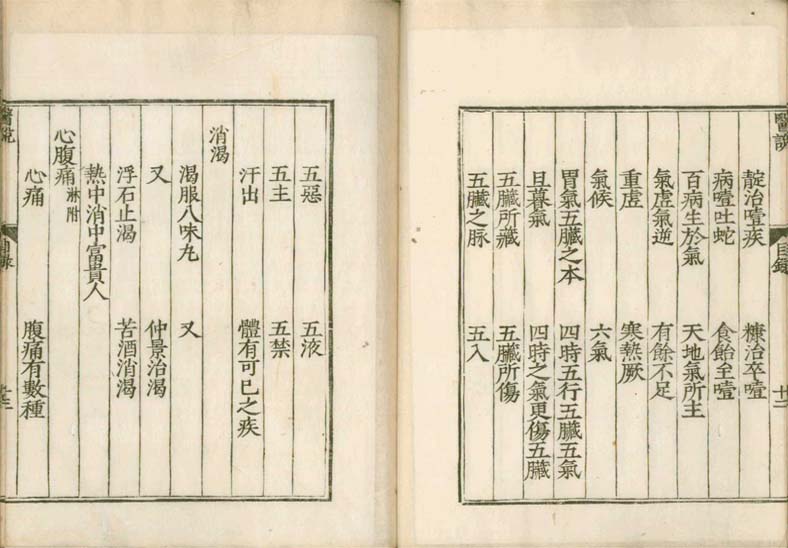 醫說
目錄
十二
靛治噎疾 糠治卒噎
病噎吐蛇 食飴至噎
百病生於氣 天地氣所主
氣虛氣逆 有餘不足
重虛 寒熱厥
氣候 六氣
胃氣五臟之本 四時五行五臟五氣
旦暮氣 四時之氣更傷五臟
五臟所藏 五臟所傷
五臟之脉 五入
五惡 五液
五主 五禁
汗出 體有可已之疾
消渴
渴服八味丸 又
又 仲景治渴
浮石止渴 苦酒消渴
熱中消中富貴人
心腹痛淋附
心痛 腹痛有數種
醫說
目錄
十三